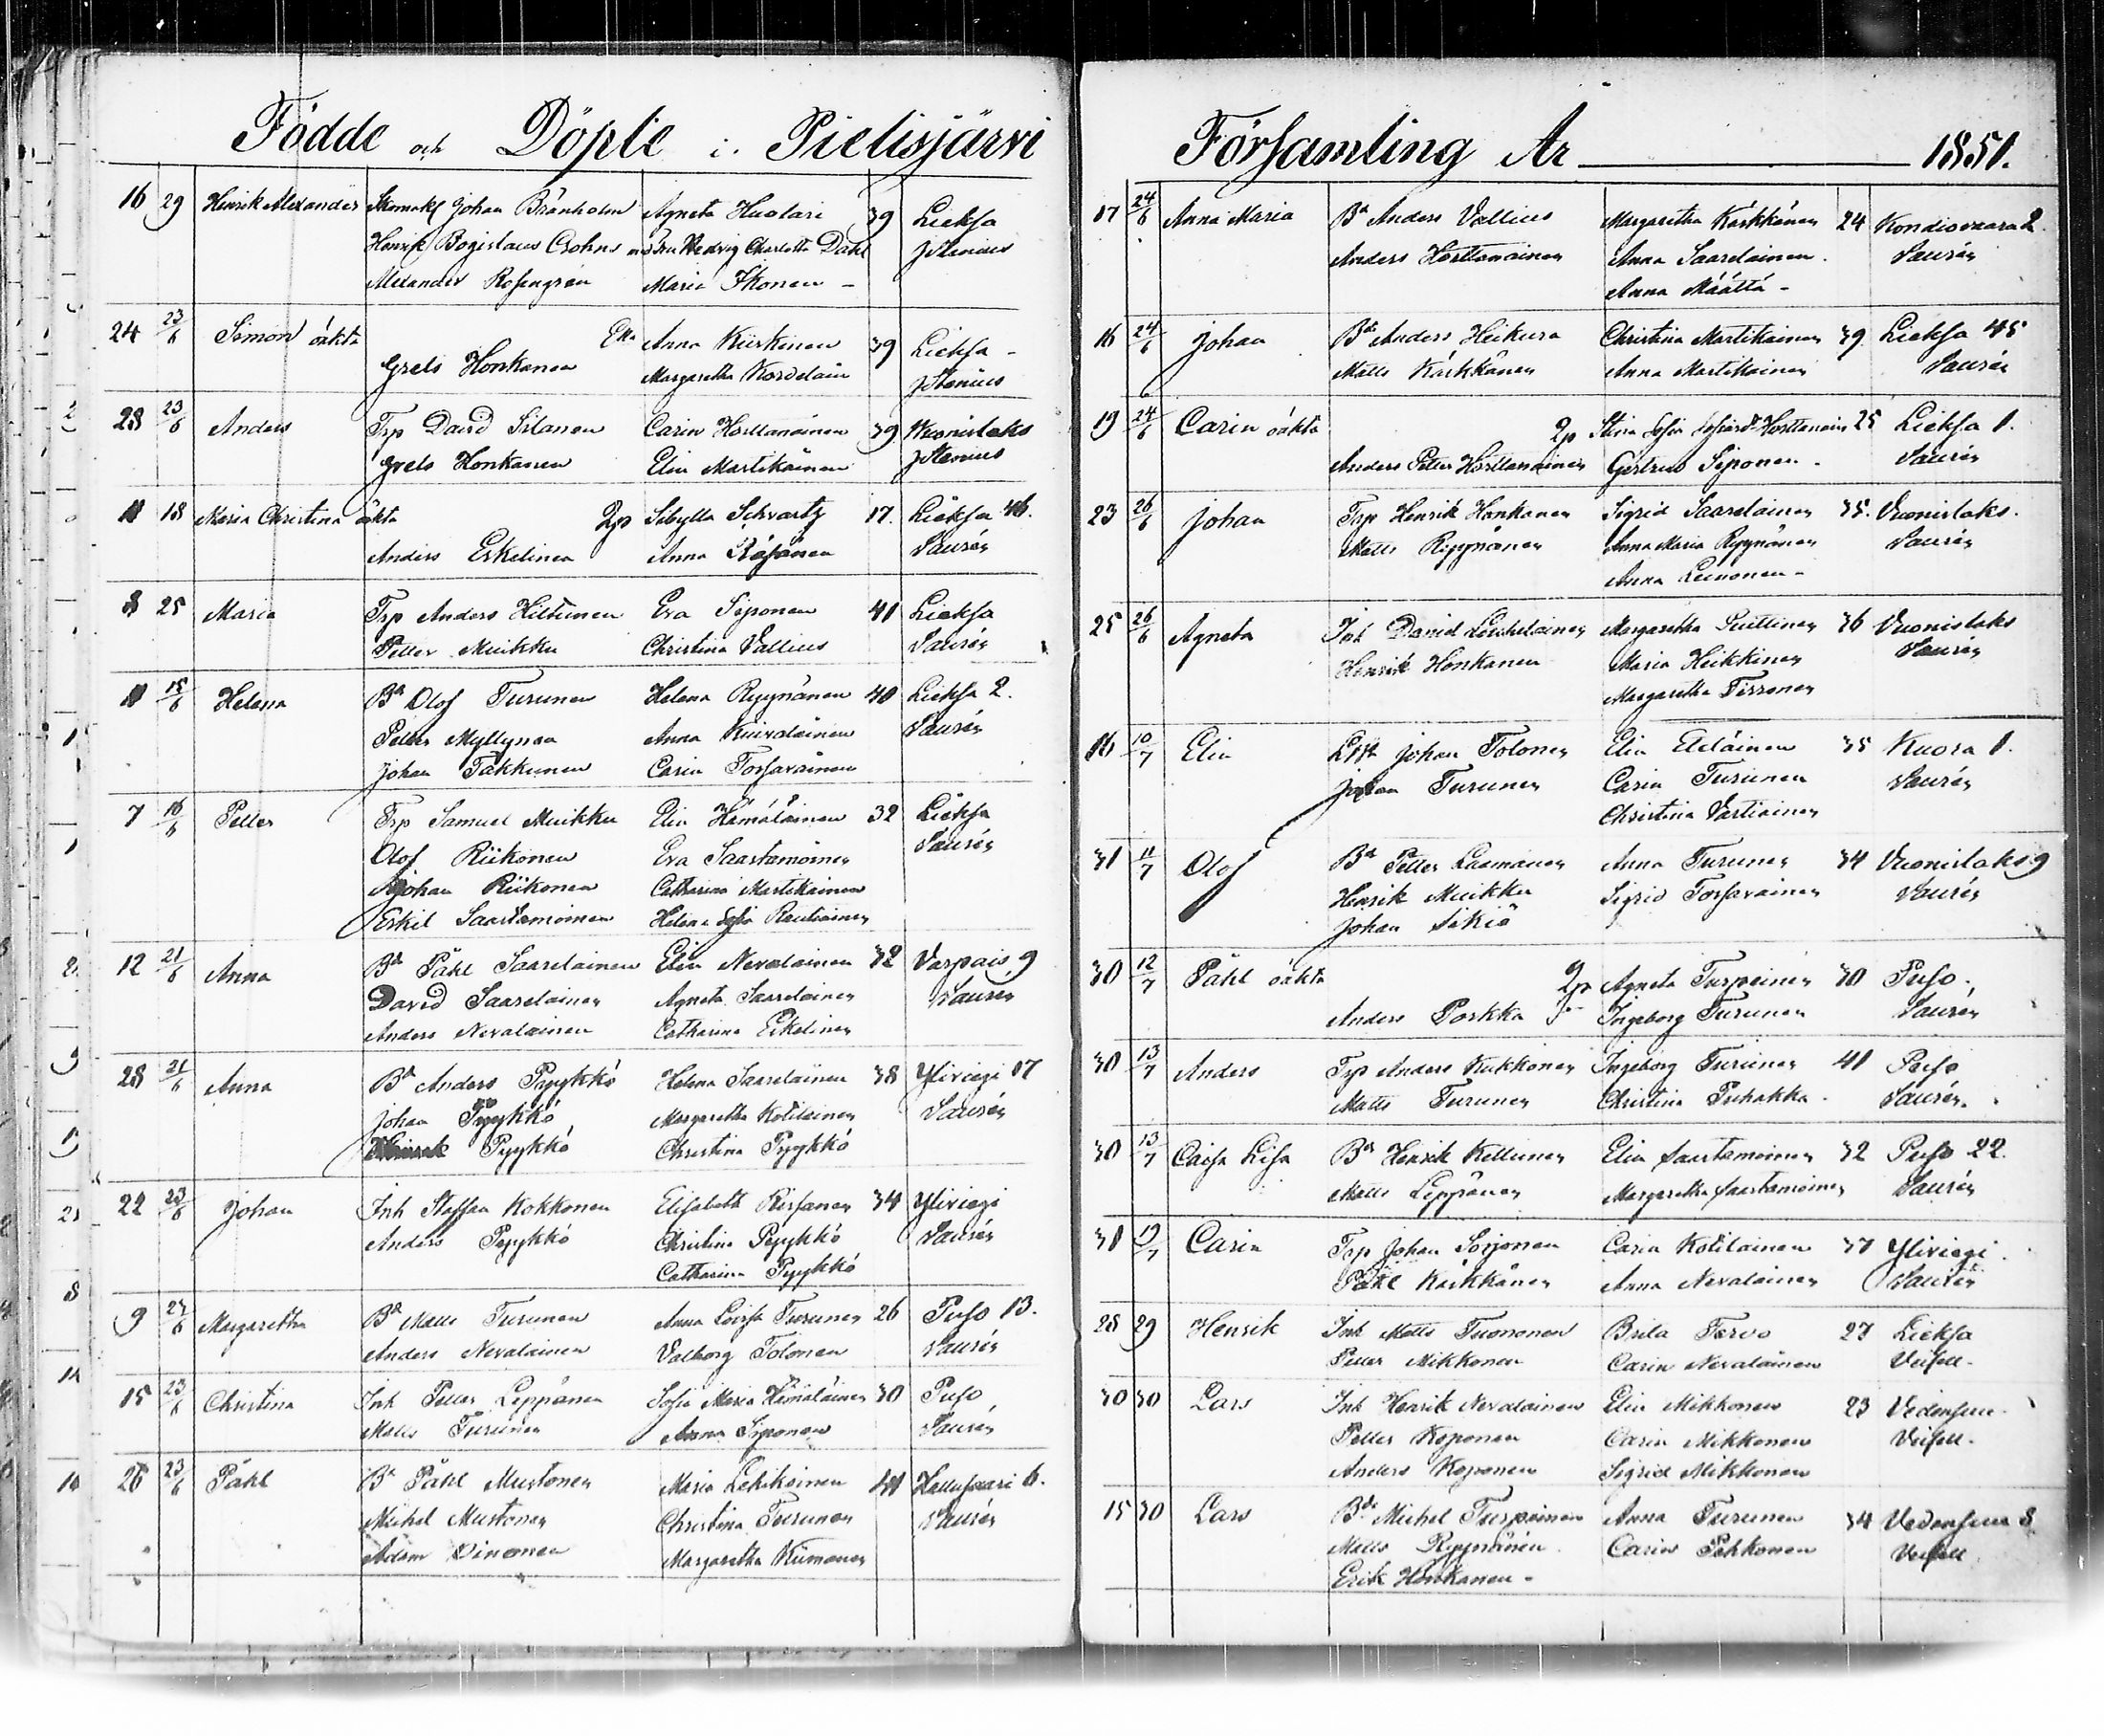 Födde och Döpte i Pielisjärvi
16 29 Henrik Alexander Skomak Johan Brånholm Agneta Huolari 39 Lieksa
Henrik Bogislaus Crohns Hedvig Charlotta Dahl JStenius
Alexander Rosengrén Maria Ikonen -
24 23/6 Simon oäkta Enka Anna Kiiskinen 39 Lieksa -
Grels Honkanen Margaretha Kordelain JStenius
28 23/6 Anders Trp David Silanen Carin Horttanainen 39 Wuonislaks
Grels Honkanen Elin Martikainen JStenius
11 18 Maria Christina oäkta 2p Sibylla Schvartz 17. Lieksa 46.
Anders Eskelinen Anna Räsänen Saurén
8 25 Maria Trp Anders Hiltunen Eva Siponen 41 Lieksa
Petter Muikku Christina Vallius Saurén
11 15/6 Helena Bd Olof Turunen Helena Ryynänen 40 Lieksa 2.
Petter Myllynen Anna Kiivalainen Saurén
Johan Takkunen Carin Torsavainen
7 16/6 Petter Trp Samuel Muikku Elin Hämäläinen 32 Lieksa
Olof Riikonen Eva Saastamoinen Saurén
Johan Riikonen Catharina Martikainen
Eskil Saastamoinen Helena Sofia Rautiainen
12 21/6 Anna Bd Påhl Saarelainen Elin Nevalainen 32 Varpais. 9
David Saarelainen Agneta Saarelainen Saurén
Anders Nevalainen Catharina Eskelinen
28 21/6 Anna Bd Anders Pyykkö Helena Saarelainen 38 Yliviexi 17
Johan Pyykkö Margaretha Kotilainen Saurén
Henrik Pyykkö Christina Pyykkö
22 23/6 Johan Inh Staffan Kokkonen Elisabeth Rissanen 34 Yliviexi
Anders Pyykkö Christina Pyykkö Saurén
Catharina Pyykkö
9 24/6 Margaretha Bd Matts Turunen Anna Lovisa Turunen 26 Puso 13.
Anders Nevalainen Valborg Tolonen Saurén
15 23/6 Christina Inh Petter Leppänen Sofia Maria Hämäläinen 30 Puso
Matts Turunen Anna Siponen Saurén
26 23/6 Påhl Bd Påhl Mustonen Maria Lehikoinen 41 Hattusaari 6.
Michel Mustonen Christina Turunen Saurén
Adam Oinonen Margaretha Kiimonen
Församling År 1851.
17 24/6 Anna Maria Bd Anders Vallius Margaretha Kärkkänen 24 Kondiovaara 2.
Anders Horttanainen Anna Saarelainen. Saurén
Anna Määttä -
16 24/6 Johan Bde Anders Heikura Christina Martikainen 39 Lieksa 45
Matts Kärkkänen Anna Martikainen Saurén
19 24/6 Carin oäkta 2p Stina Sofia Horttanain 25 Lieksa 1.
Anders Petter Horttanainen Gertrud Siponen. Saurén
23 26/6 Johan Trp Henrik Honkanen Sigrid Saarelainen 35. Vuonislaks.
Matts Ryynänen Anna Maria Ryynänen Saurén
Anna Leinonen -
25 26/6 Agneta Inh David Leskelainen Margaretha Puittinen 36 Vuonislaks
Henrik Honkanen Maria Heikkinen Saurén
Margaretha Tissonen
16 10/7 Elin Johan Tolonen Elin Eteläinen 35 Kuora 1.
Johan Turunen Carin Turunen Saurén
Christina Vartiainen
31 11/7 Olof Bd Petter Laamanen Anna Turunen 34 Vuonislaks 9
Henrik Muikku Sigrid Torsavainen Saurén
Johan Sikiö
30 12/7 Påhl oäkta 2p Agneta Turpeinen 30 Puso.
Anders Porkka Ingeborg Turunen Saurén
30 13/7 Anders Trp Anders Kukkonen Ingeborg Turunen 41 Puso
Matts Turunen Christina Puhakka. Saurén.
30 13/7 Caisa Lisa Bd Henrik Kettunen Elin Saastamoinen 32 Puso 22.
Matts Leppänen Margaretha Saastamoinen Saurén
31 19/7 Carin Trp Johan Sorjonen Carin Kotilainen 37 Yliviexi.
Påhl Kärkkänen Anna Nevalainen Saurén
28 29 Henrik Inh Matts Tuononen Brita Tervo 27 Lieksa
Petter Mikkonen Carin Nevalainen Veisell.
30 30 Lars Inh Henrik Nevalainen Elin Mikkonen 23 Vedensuu.
Petter Koponen Carin Mikkonen Veisell.
Anders Koponen Sigrid Mikkonen
15 30 Lars Bde Michel Turpeinen Anna Turunen 34 Vedensuu 8
Matts Ryynänen. Carin Pehkonen Veisell.
Erik Honkanen -